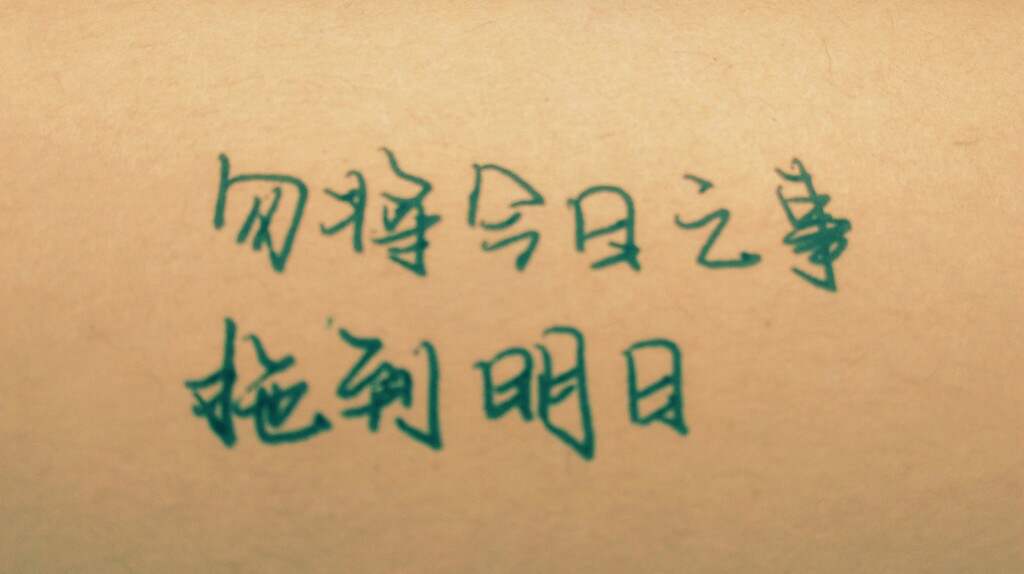 勿将今日之事
拖到明日